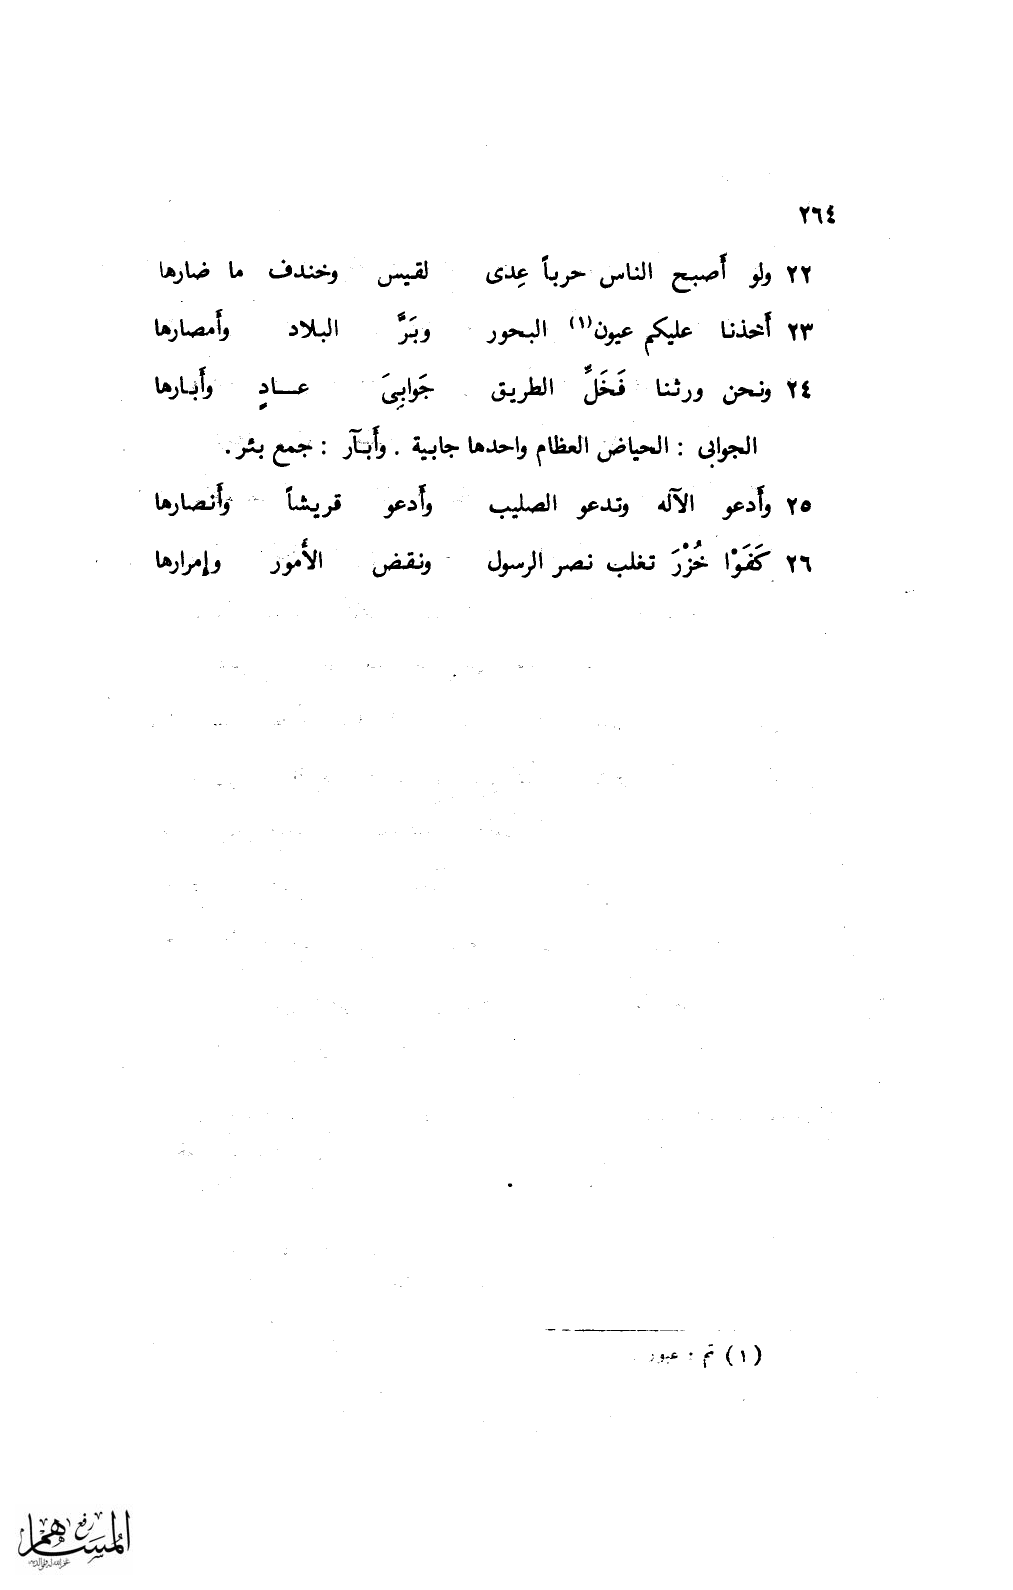 ٢٦٤
٢٢ ولو أَصبح الناس حرباً عِدى لقيس وخندف ما ضارها
٢٣ أَخذنا عليكم عيون(١) البحور وبَرَّ البلاد وأَمصارها
٢٤ ونحن ورثنا فَخَلِّ الطريق جَوابِىَ عادٍ وأَبارها
الجوابى : الحياض العظام واحدها جابية . وأَبآر : جمع بئر .
٢٥ وأَدعو الآله وتدعو الصليب وأَدعو قريشاً وأَنصارها
٢٦ كَفَوْا خُزْرَ تغلب نصر الرسول ونقض الأَمور وإمرارها
(١) تم : عبور
رفع
المساهم